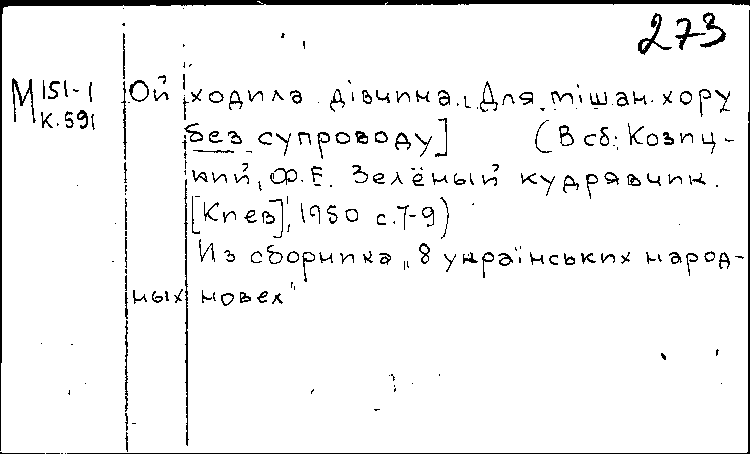 273
М 151-1
К.591
Ой ходила дівчина. [Для мішан. хору
без супроводу] (В сб: Козиц-
кий, Ф.Е. Зелёный кудрявчик.
[Киев], 1950 с.7-9)
Из сборника "8 українських народ-
ных новел"